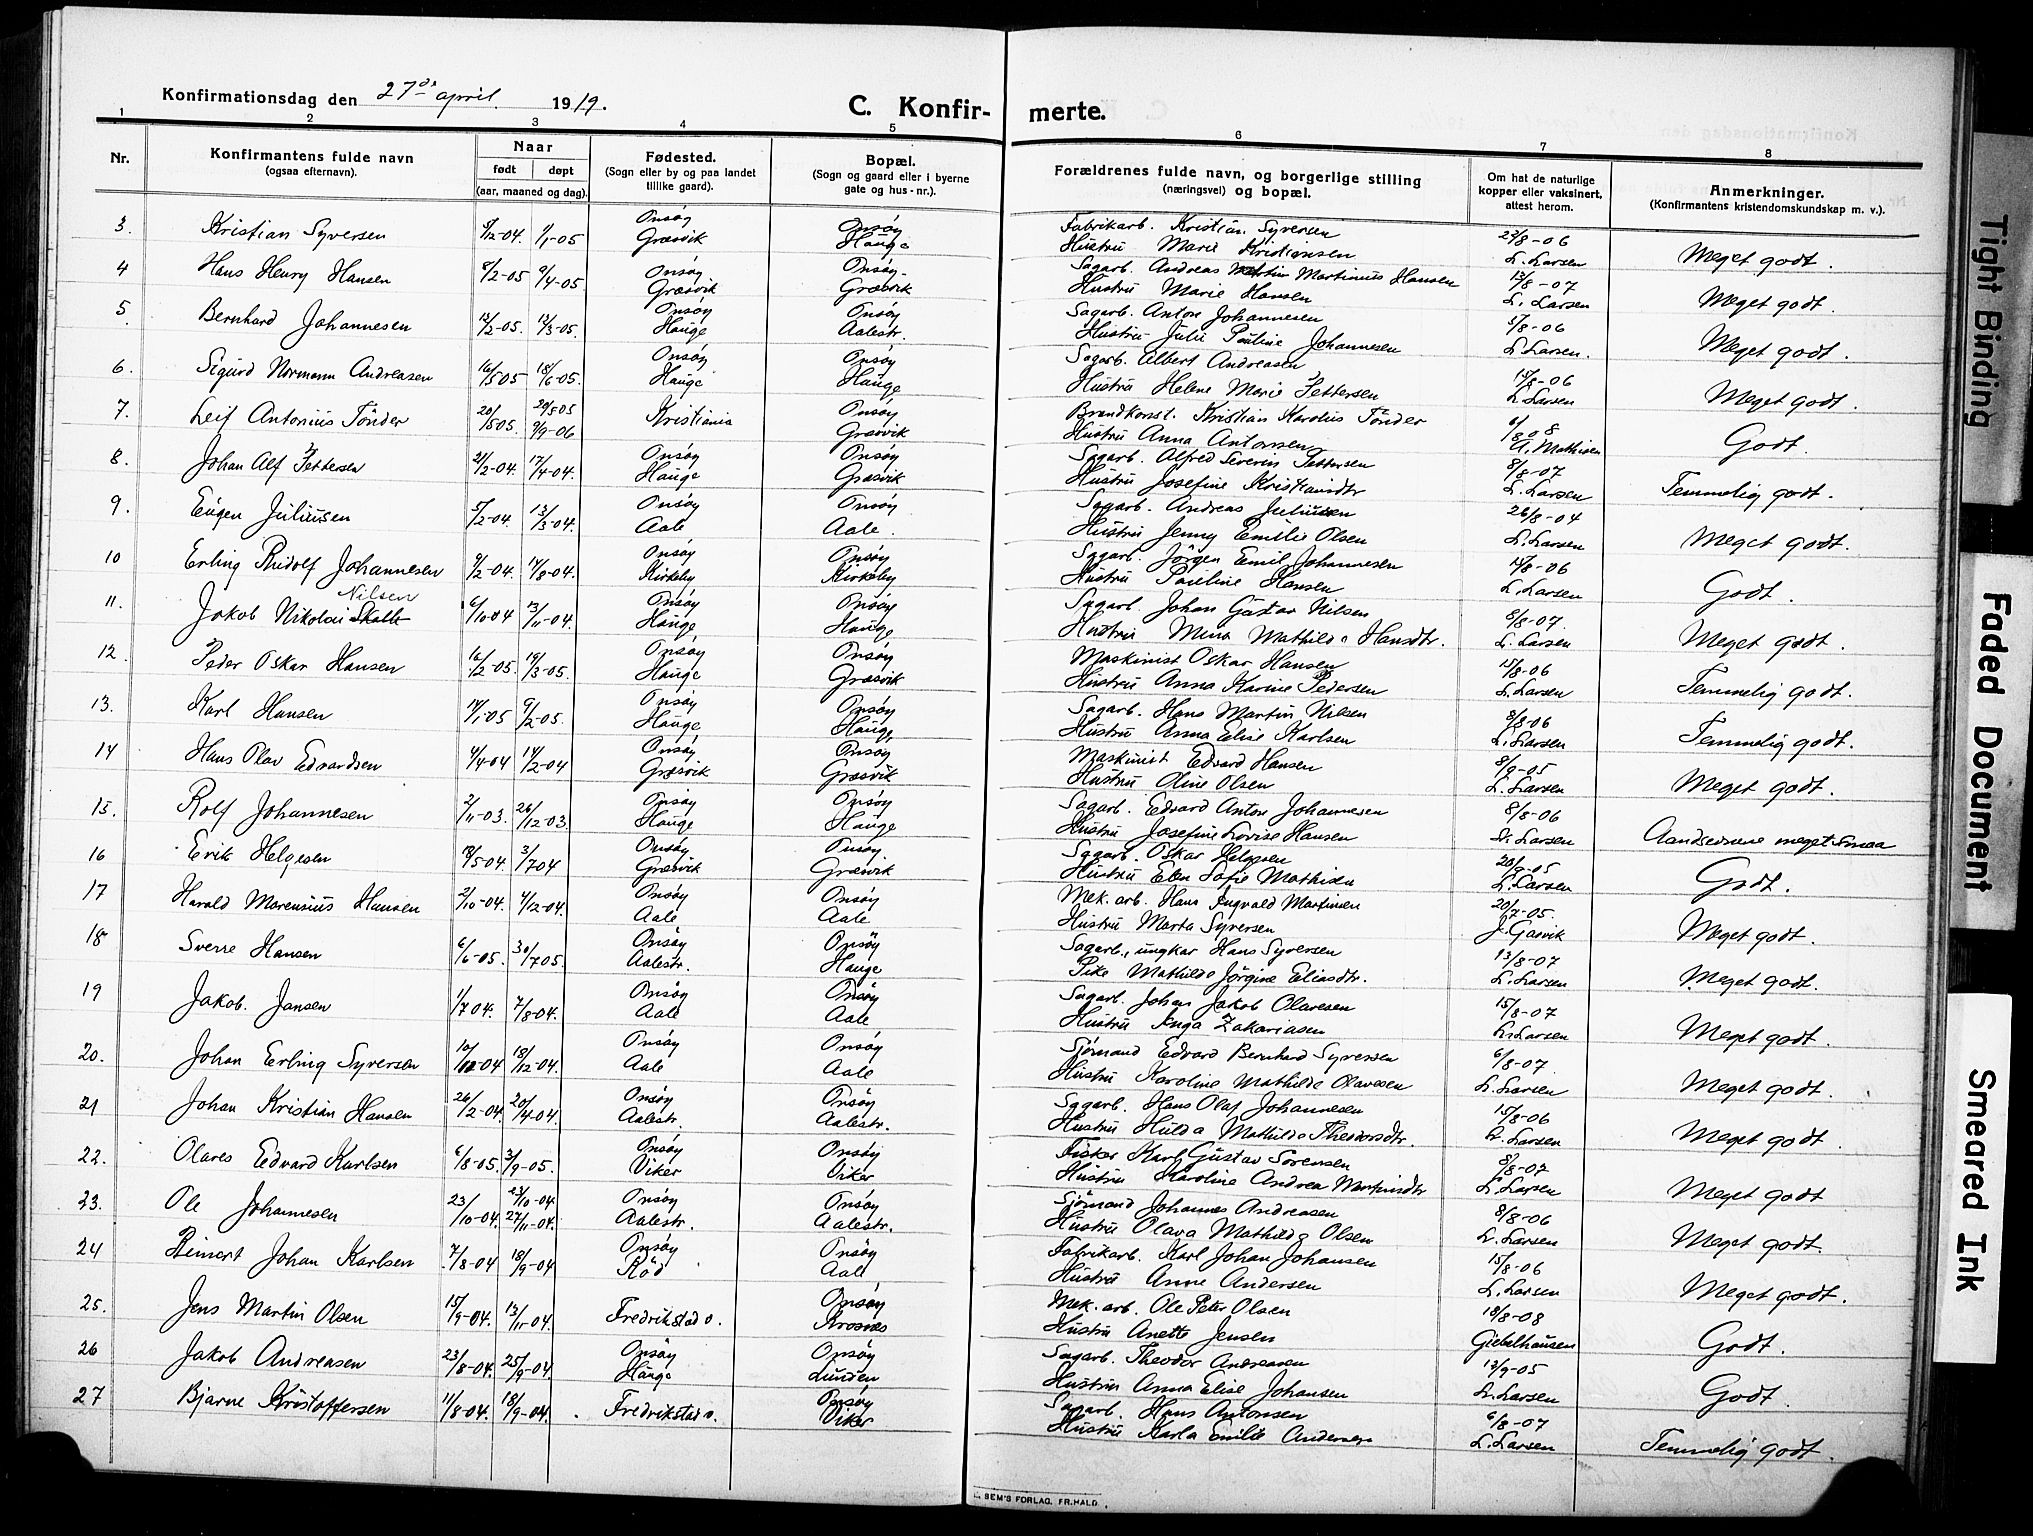 Konfirmationsdag den 27de april 1919.
C. Konfirmerte.
1 2 3 4 5 6 7 8
Nr.
Konfirmantens fulde navn
(ogsaa efternavn).
Naar
født døpt
(aar, maaned og dag).
Fødested.
(Sogn eller by og paa landet
tillike gaard).
Bopæl.
(Sogn og gaard eller i byerne
gate og hus-nr.).
Forældrenes fulde navn, og borgerlige stilling
(næringsvei) og bopæl.
Om hat de naturlige
kopper eller vaksinert,
attest herom.
Anmerkninger.
(Konfirmantens kristendomskundskap m. v.).
3. Kristian Syversen 5/12-04. 1/1-05 Onsøy Græsvik Onsøy Hauge Fabrikarb. Kristian Syversen 22/8-06
Hustru Marie Kristiansen L. Larsen Meget godt.
4 Hans Henry Hansen 5/2-05 9/4-05 Onsøy Græsvik Onsøy Græsvik Sagarb. Andreas Martinius Hansen 13/8-07
Hustru Marie Hansen L. Larsen Meget godt.
5. Bernhard Johannesen 12/2-05. 12/3-05. Onsøy Hauge Onsøy Aalestr. Sagarb. Anton Johannesen 5/8-06
Hustru Julie Pauline Johannesen L. Larsen. Meget godt.
6. Sigurd Normann Andreasen 16/5 05 18/6-05. Onsøy Hauge Onsøy Hauge Sagarb. Albert Andreasen 15/8-06
Hustru Helene Marie Pettersen L. Larsen Meget godt.
7. Leif Antonius Tönder 20/5 05. 20/5 05 9/9-06 Kristiania Onsøy Græsvik Brandkonst. Kristian Karolius Tönder 6/8 08
Hustru Anna Antonsen A. Mathisen Godt.
8. Johan Alf Pettersen 21/2-04. 17/4-04. Onsøy Hauge Onsøy Græsvik Sagarb. Alfred Severin Pettersen 8/8-07
Hustru Josefine Kristiansdtr L. Larsen Temmelig godt.
9. Eugen Juliussen 5/2-04. 13/3-04. Onsøy Aale Onsøy Aale. Sagarb. Andreas Juliussen 26/8-04
Hustru Jenny Emilie Olsen L. Larsen Meget godt.
10 Erling Rudolf Johannesen 9/2-04. 14/8-04. Onsøy Kirkeby Onsøy Kirkeby Sagarb. Jörgen Emil Johannesen 14/8-06
Hustru Pauline Hansen L. Larsen Godt.
11. Jakob Nikolai Skalle Nilsen 6/10-04 13/11-04. Onsøy Hauge Onsøy Hauge Sagarb. Johan Gustav Nilsen 8/8-07.
Hustru Mina Mathilde Hansdtr. L. Larsen Meget godt.
12. Peder Oskar Hansen 16/2-05. 19/3-05. Onsøy Hauge Onsøy Græsvik Maskinist Oskar Hansen 15/8-06
Hustru Anna Karine Pedersen L. Larsen Temmelig godt.
13. Karl Hansen 14/1-05 9/2-05. Onsøy Hauge Onsøy Hauge Sagarb. Hans Martin Nilsen 8/8-06
Hustru Anna Elise Karlsen L. Larsen Temmelig godt.
14 Hans Olav Edvardsen 4/4-04 14/2-04 Onsøy Græsvik Onsøy Græsvik Maskinist Edvard Hansen 8/9-05
Hustru Oline Olsen L. Larsen Meget godt.
15. Rolf Johannesen 2/11-03. 26/12-03 Onsøy Hauge Onsøy Hauge Sagarb. Edvard Anton Johannesen 8/8-06
Hustru Josefine Lovise Hansen L. Larsen Aandsevnene meget smaa
16 Erik Helgesen 18/5-04 3/7 04 Onsøy Græsvik Onsøy Græsvik Sagarb. Oskar Helgesen 20/8-05
Hustru Elen Sofie Mathisen L. Larsen Godt.
17 Harald Marensius Hansen 2/10-04 4/12-04. Onsøy Aale Onsøy Aale Mek. arb. Hans Ingvald Martinsen 20/7-05.
Hustru Marta Syversen J. Gasvik Meget godt.
18 Sverre Hansen 6/6-05. 30/7 05. Onsøy Aalestr. Onsøy Hauge Sagarb., ungkar Hans Syversen 13/8-07
Pike Mathilde Jörgine Eliasdtr. L. Larsen Meget godt.
19 Jakob Jansen 1/7 04. 7/8-04. Onsøy Aale Onsøy Aale Sagarb. Johan Jakob Olavesen 15/8-07
Hustru Inga Zakariasen L. Larsen Meget godt.
20. Johan Erling Syversen 10/10-04 18/12-04. Onsøy Aale Onsøy Aale Sjömand Edvard Bernhard Syversen 6/8-07.
Hustru Karoline Mathilde Olavesen L. Larsen Meget godt.
21 Johan Kristian Hansen 26/2-04. 20/4-04. Onsøy Aalestr. Onsøy Aalestr. Sagarb. Hans Olaf Johannesen 15/8-06
Hustru Hulda Mathilde Theodorsdtr. L. Larsen Meget godt.
22. Olaves Edvard Karlsen 6/8-05. 3/9-05. Onsøy Viker Onsøy Viker Fisker Karl Gustav Sörensen 8/8-07
Hustru Karoline Andrea Martinsdtr L. Larsen Meget godt
23. Ole Johannesen 23/10-04. 23/10-04 27/11-04. Onsøy Aalestr. Onsøy Aalestr. Sjömand Johannes Andreasen 8/8-06
Hustru Olava Mathilde Olsen L. Larsen Meget godt.
24 Reinert Johan Karlsen 7/8-04 18/9-04 Onsøy Röd Onsøy Aale Fabrikarb. Karl Johan Johansen 15/8-06
Hustru Anne Andersen L. Larsen Meget godt.
25. Jens Martin Olsen 15/9-04. 13/11-04. Fredrikstad v. Onsøy Krosnes Mek. arb. Ole Peter Olsen 18/8-08
Hustru Anette Jensen Giebelhausen Godt.
26 Jakob Andreasen 23/8-04. 25/9-04 Onsøy Hauge Onsøy Lunden Sagarb. Theodor Andreasen 13/9-05
Hustru Anna Elise Johansen L. Larsen Godt.
27 Bjarne Kristoffersen 11/8-04. 18/9-04. Fredrikstad v. Onsøy Viker Sagarb. Hans Antonsen 6/8-07
Hustru Karla Emilie Andersen L. Larsen Temmelig godt.
SEM'S FORLAG, FR.HALD.
Tight Binding
Faded Document
Smeared Ink